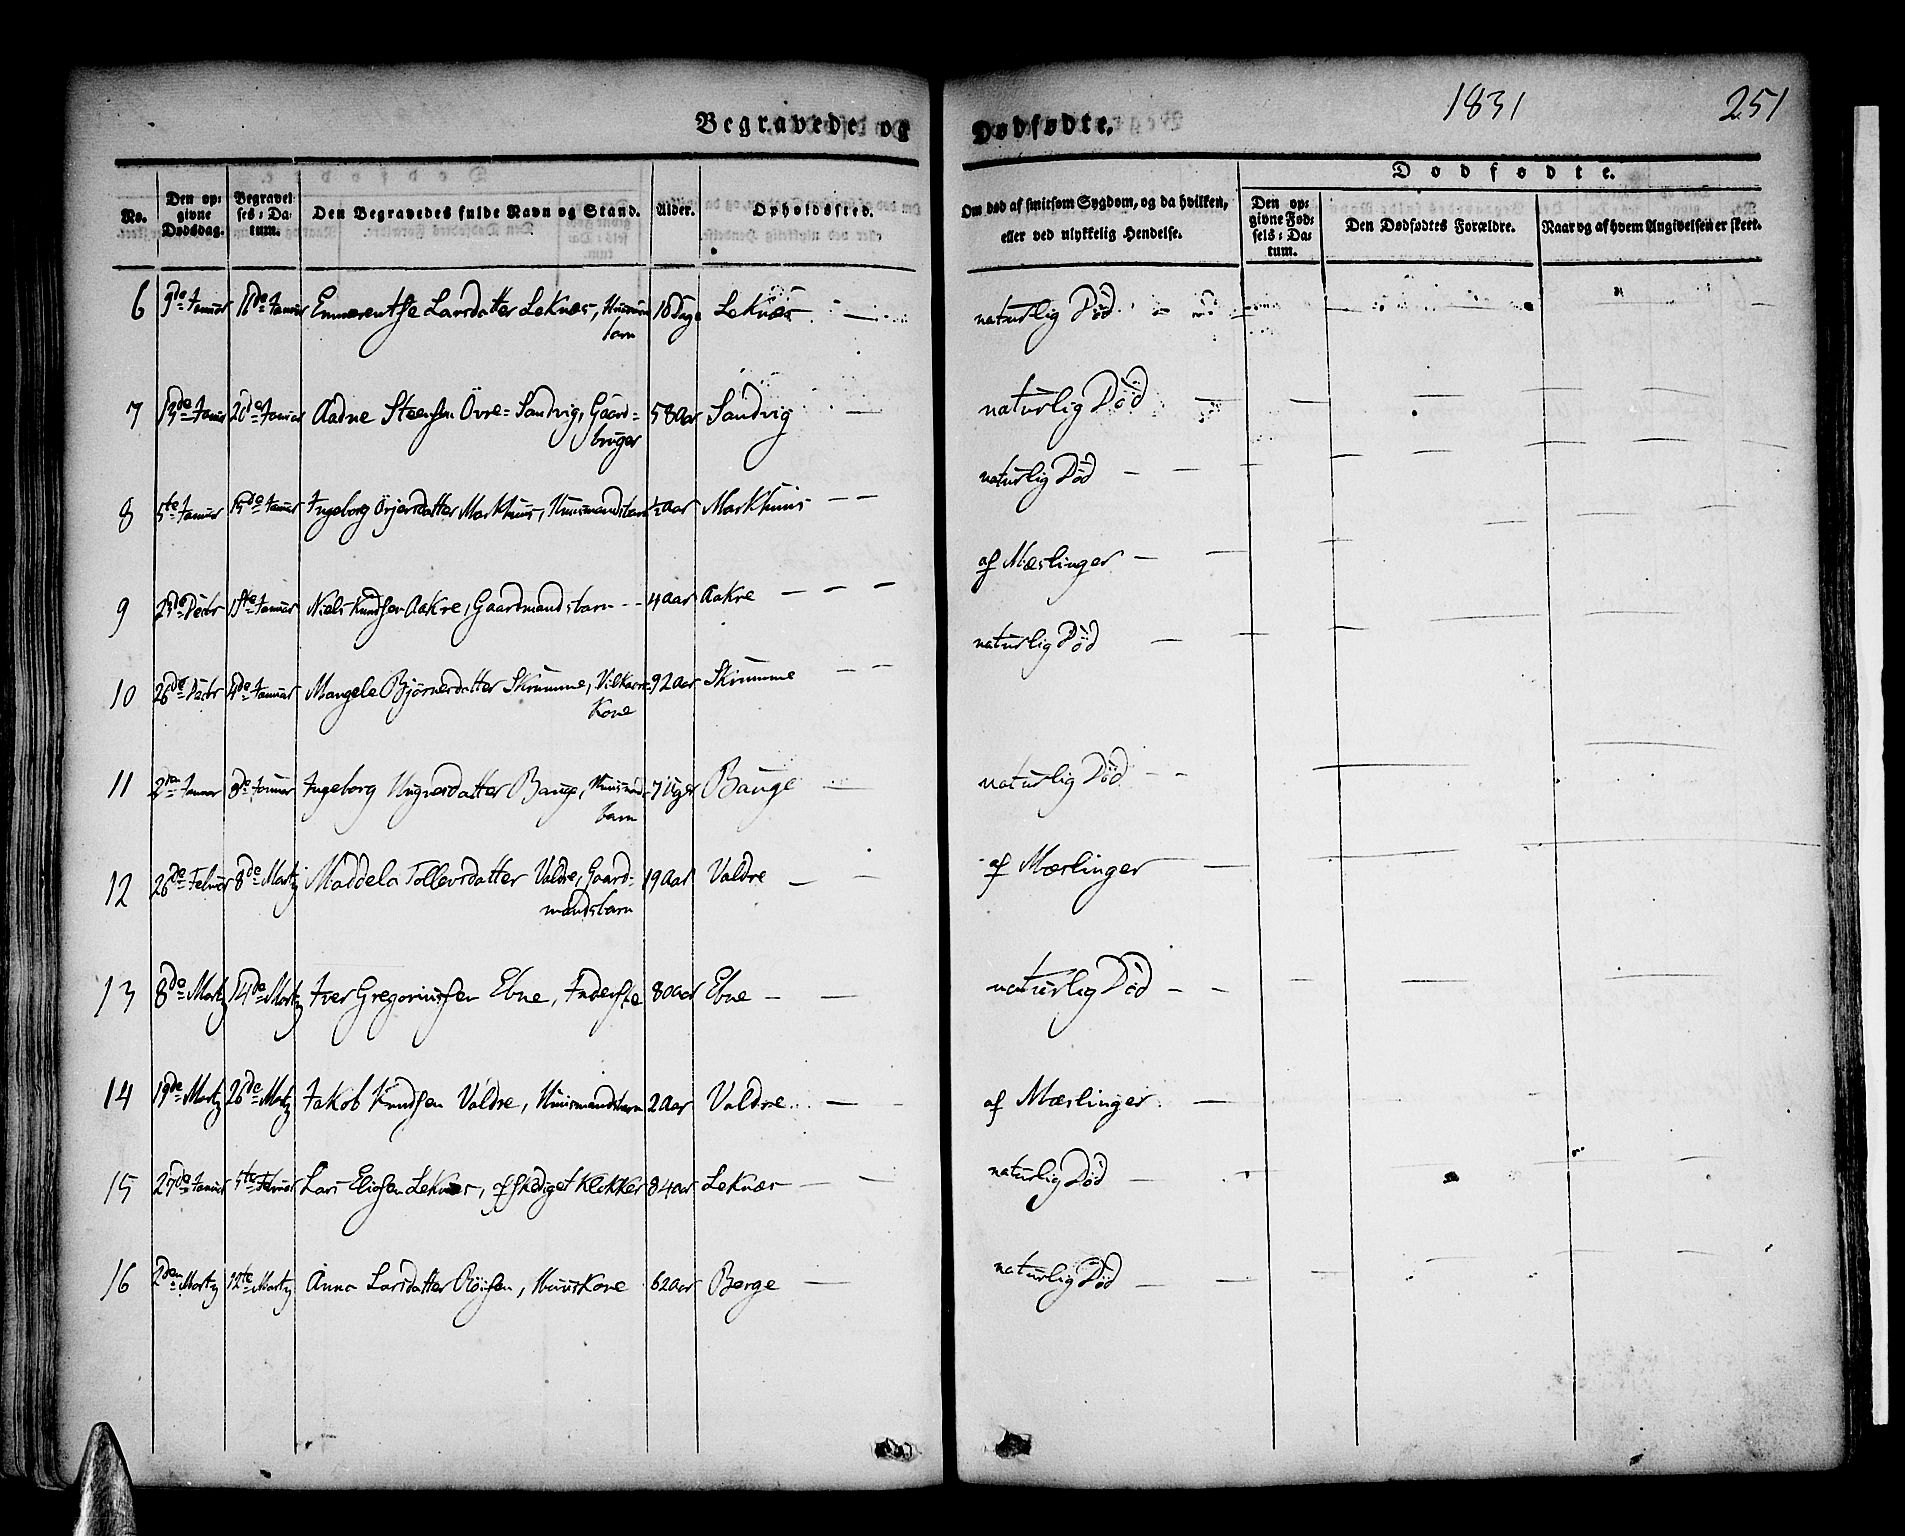 1831 251
Begravede og Dødfødte.
No. Den opgivne Dødsdag. Begravelses: Datum. Den Begravedes fulde Navn og Stand. Alder. Opholdssted. Om død af smitsom Sygdom, og da hvilken, eller ved ulykkelig Hendelse.
Dødfødte.
Den opgivne Fødsels: Datum. Den Dødfødtes Forældre. Naar og af hvem Angivelsen er skeet.
6 9de Januar 16de Januar Emmerentse Larsdatter Leknæs, 18 Dage Leknæs naturlig Død
barn
7 13de Januar 20de Januar Aadne Steensen Övre=Sandvig, Gaard= 58 Aar Sandvig naturlig Död
bruger
8 5te Januar 15de Januar Ingeborg MarKhuus, Huusmandsbarn ½ Aar MarKhuus naturlig Död
9 29de Decbr Januar Niels Knudsen AaKre, Gaardmandsbarn 4 Aar AaKre af Mæslinger
10 26de Decbr Januar Mangela Björnersdatter SKrumme, VilKaars= 92 Aar SKrumme naturlig Död
Kone
11 2den Januar 8de Januar Ingeborg Bauge, 7 Uger Bauge naturlig Död
barn
12 26de Februar 8de Martz Maddela Tollevsdatter Valdre, Gaard= 19 Aar Valdre af Mæslinger
mandsbarn
13 8de Martz 14de Martz Iver Gregoriussen Ebne, Inderste 80 Aar Ebne naturlig Död
14 19de Martz 26de Martz Jakob Knudsen Valdre, Huusmandsbarn 2 Aar Valdre af Mæslinger
15 27de Januar 5te Februar Lars Eliesen LeKnæs, afskediget KlokKer 84 Aar LeKnæs naturlig Död
16 2den Martz 12te Martz Anna Larsdatter Röisen, HuusKone 62 Aar Berge naturlig Död